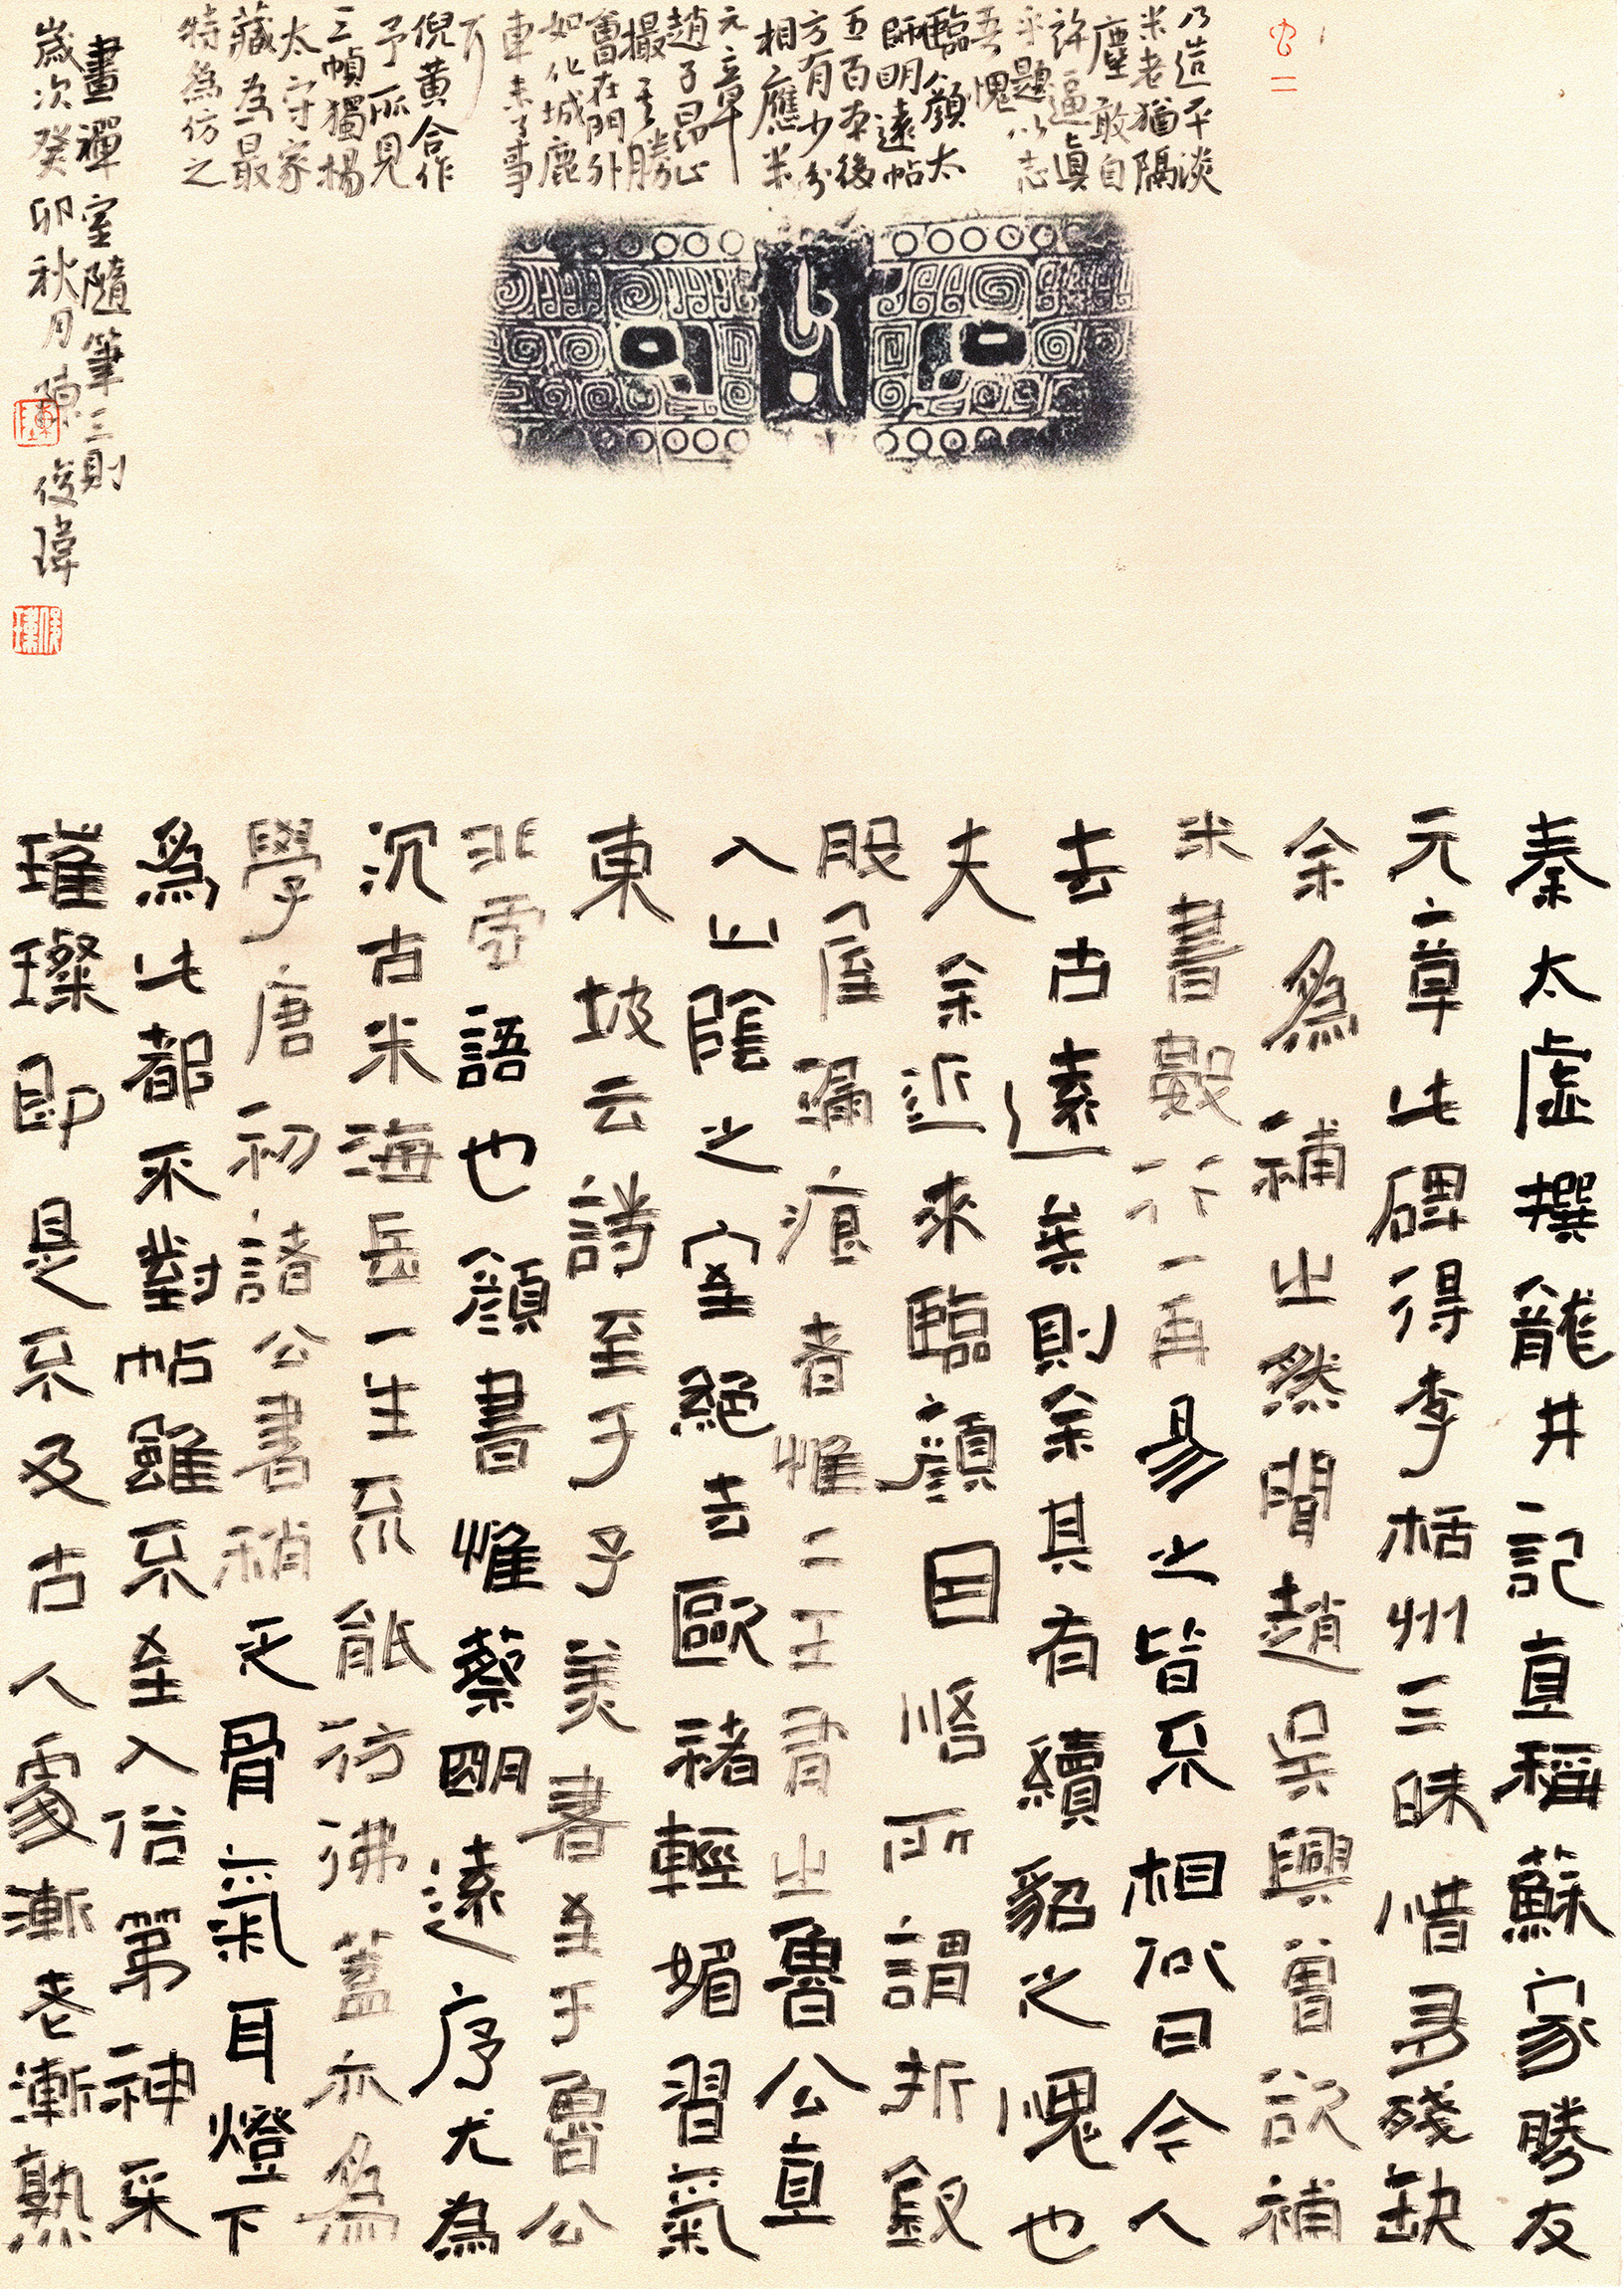 秦太虛撰龍井記直稱蘇家勝友
元章此碑得李栝州三昧惜多殘缺
余爲補出然聞趙吳興曾欲補
米書數行一再易之皆不相似曰今人
去古遠矣則余其有續貂之愧也
夫余近來臨顏因悟所謂折釵
股屋漏痕者惟二王有出魯公直
入山陰之室絕去歐褚輕媚習氣
東坡云詩至于子美書至于魯公
非虛語也顏書惟蔡明遠序尤為
沉古米海岳一生不能彷彿蓋亦爲
學唐初諸公書稍乏骨氣耳燈下
爲此都不對帖雖不至入俗第神采
璀璨即是不及古人處漸老漸熟
乃造平淡
米老猶隔
塵敢自
許逼真
乎題以志
吾愧
臨顏太
師明遠帖
五百本後
方有少分
相應米
元章
趙子昂止
撮其勝
會在門外
如化城鹿
車未了事
倪黃合作
予所見
三幀獨楊
太守家
藏為最
特為仿之
畫禪室隨筆三則
歲次癸卯秋月陳俊瑋